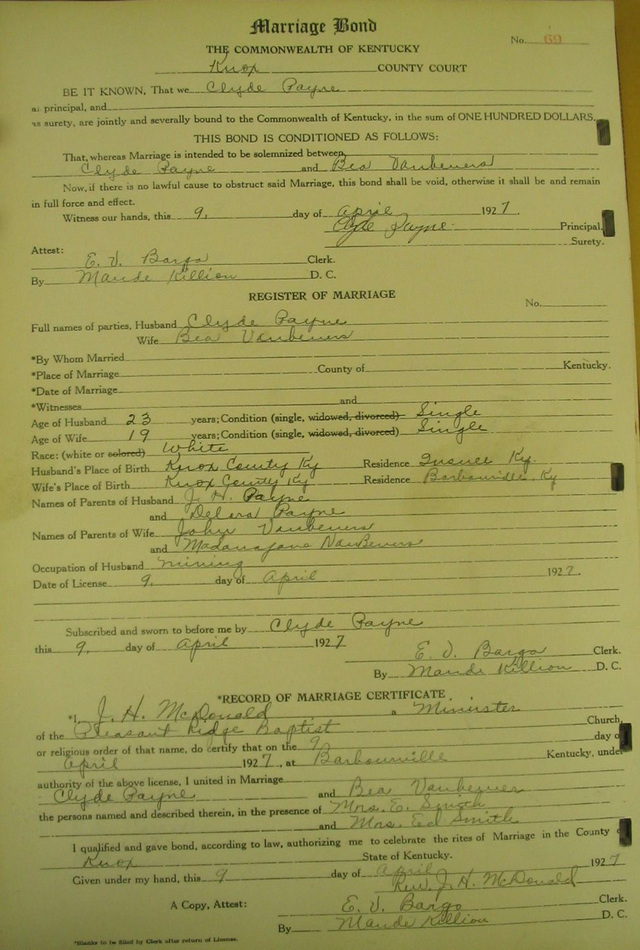 Marriage Bond
No. 69
THE COMMONWEALTH OF KENTUCKY
Knox COUNTY COURT
BE IT KNOWN, That we Clyde Payne
as principal, and
as surety, are jointly and severally bound to the Commonwealth of Kentucky, in the sum of ONE HUNDRED DOLLARS.
THIS BOND IS CONDITIONED AS FOLLOWS:
That, whereas Marriage is intended to be solemnized between
Clyde Payne and Bea Vanbevers
Now, if there is no lawful cause to obstruct said Marriage, this bond shall be void, otherwise it shall be and remain
in full force and effect.
Witness our hands, this 9, day of April 1927
Clyde Payne Principal.
Surety.
Attest:
E. V. Bargo Clerk.
By Maude Killion D. C.
REGISTER OF MARRIAGE
No.
Full names of parties, Husband Clyde Payne
Wife Bea Vanbevers
*By Whom Married
*Place of Marriage County of Kentucky.
*Date of Marriage
*Witnesses and
Age of Husband 23 years; Condition (single, widowed, divorced) Single
Age of Wife 19 years; Condition (single, widowed, divorced) Single
Race: (white or colored) White
Husband's Place of Birth Knox County Ky Residence Ky.
Wife's Place of Birth Knox County Ky Residence Barbourville, Ky
Names of Parents of Husband J. H. Payne
and Payne
Names of Parents of Wife John Vanbevers
and VanBevers
Occupation of Husband mining
Date of License 9, day of April 1927.
Subscribed and sworn to before me by Clyde Payne
this 9, day of April 1927
E. V. Bargo Clerk.
By Maude Killion D. C.
*RECORD OF MARRIAGE CERTIFICATE
*I, J. H. McDonald a Minister
of the Pleasant Ridge Baptist Church,
or religious order of that name, do certify that on the 9 day of
April 1927, at Barbourville Kentucky, under
authority of the above license, I united in Marriage
Clyde Payne and Bea Vanbever
the persons named and described therein, in the presence of Mrs. E. Smith
and Mrs. Ed Smith
I qualified and gave bond, according to law, authorizing me to celebrate the rites of Marriage in the County of
Knox State of Kentucky.
Given under my hand, this 9 day of April 1927
Rev. J. H. McDonald
A Copy, Attest: E. V. Bargo Clerk
By Maude Killion
*Blanks to be filled by Clerk after return of License.